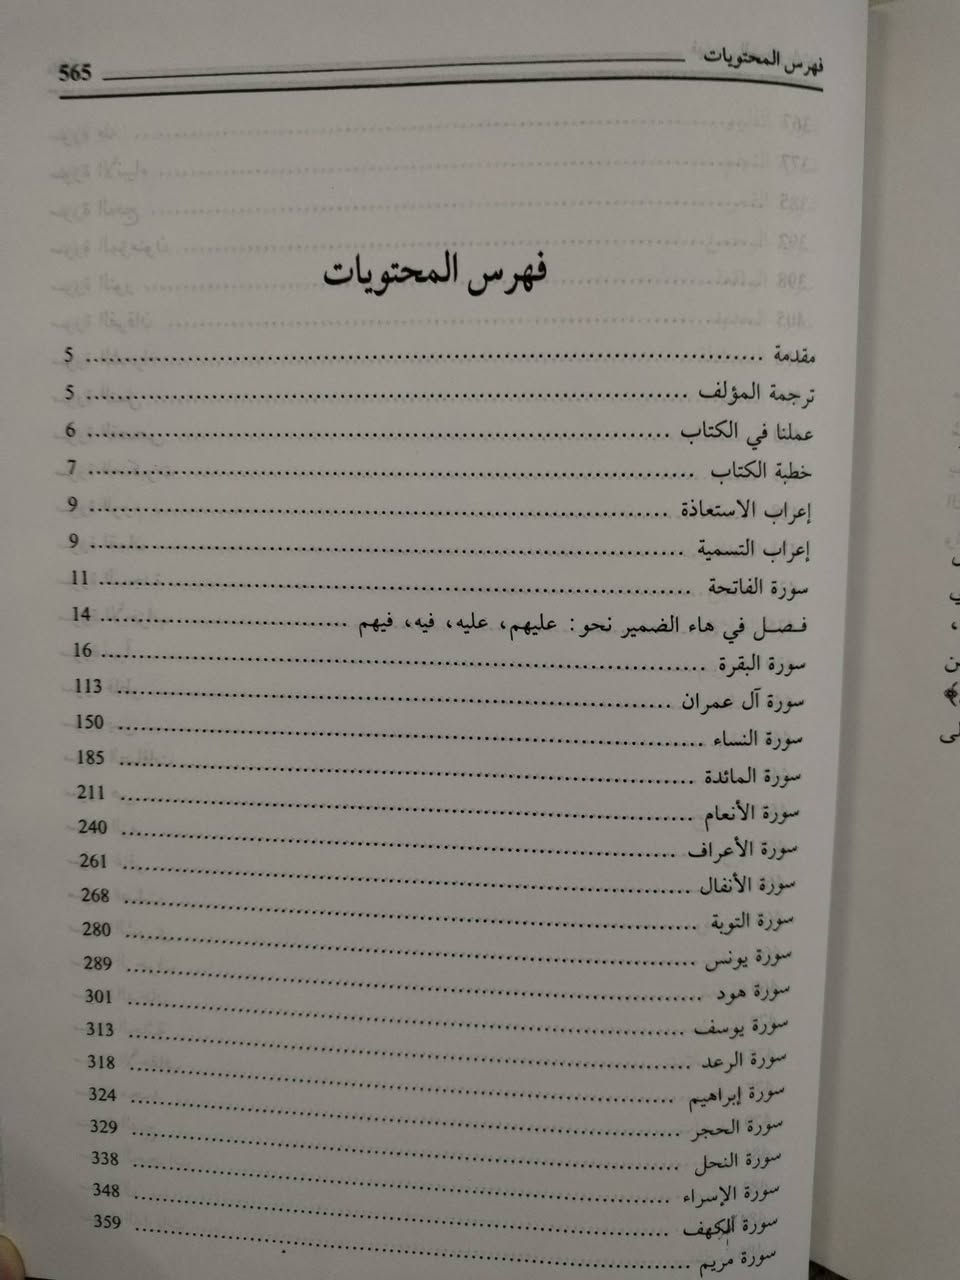 فهرس المحتويات 565
فهرس المحتويات
مقدمة 5
ترجمة المؤلف 5
عملنا في الكتاب 6
خطبة الكتاب 7
إعراب الاستعاذة 9
إعراب التسمية 9
سورة الفاتحة 11
فصل في هاء الضمير نحو: عليهم، عليه، فيه، فيهم 14
سورة البقرة 16
سورة آل عمران 113
سورة النساء 150
سورة المائدة 185
سورة الأنعام 211
سورة الأعراف 240
سورة الأنفال 261
سورة التوبة 268
سورة يونس 280
سورة هود 289
سورة يوسف 301
سورة الرعد 313
سورة إبراهيم 318
سورة الحجر 324
سورة النحل 329
سورة الإسراء 338
سورة الكهف 348
سورة مريم 359